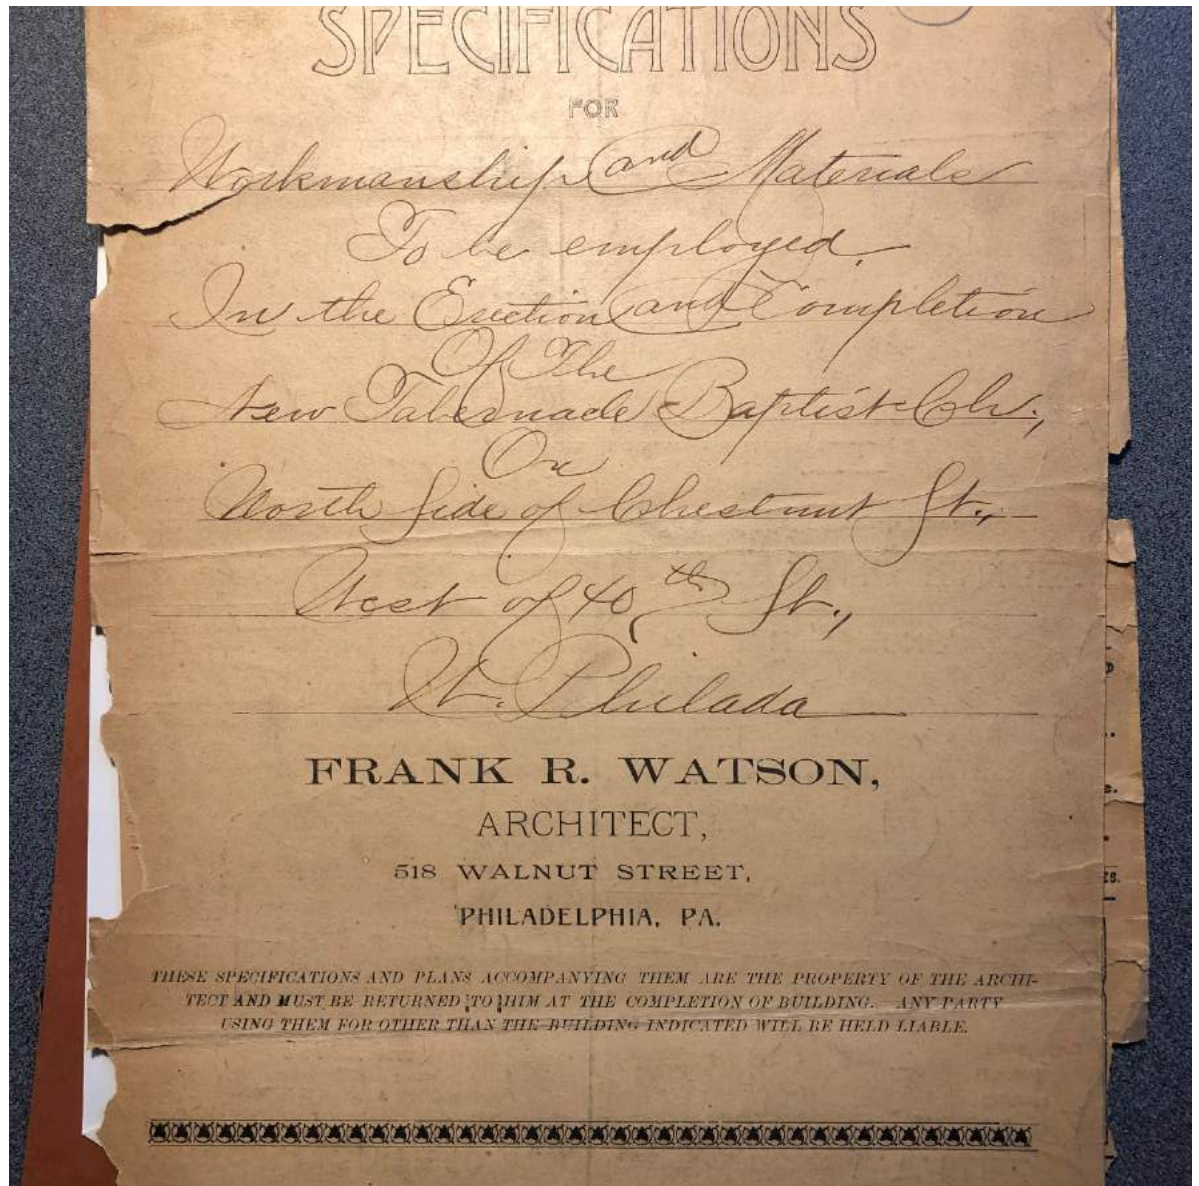 SPECIFICATIONS
FOR
Workmanship and Materials
To be employed
In the Erection and Completion
Of The
New Tabernacle Baptist Ch.,
On
North Side of Chestnut St.,
West of 40th St.,
W. Philada
FRANK R. WATSON,
ARCHITECT,
518 WALNUT STREET,
PHILADELPHIA, PA.
THESE SPECIFICATIONS AND PLANS ACCOMPANYING THEM ARE THE PROPERTY OF THE ARCHI-
TECT AND MUST BE RETURNED TO HIM AT THE COMPLETION OF BUILDING. ANY PARTY
USING THEM FOR OTHER THAN THE BUILDING INDICATED WILL BE HELD LIABLE.